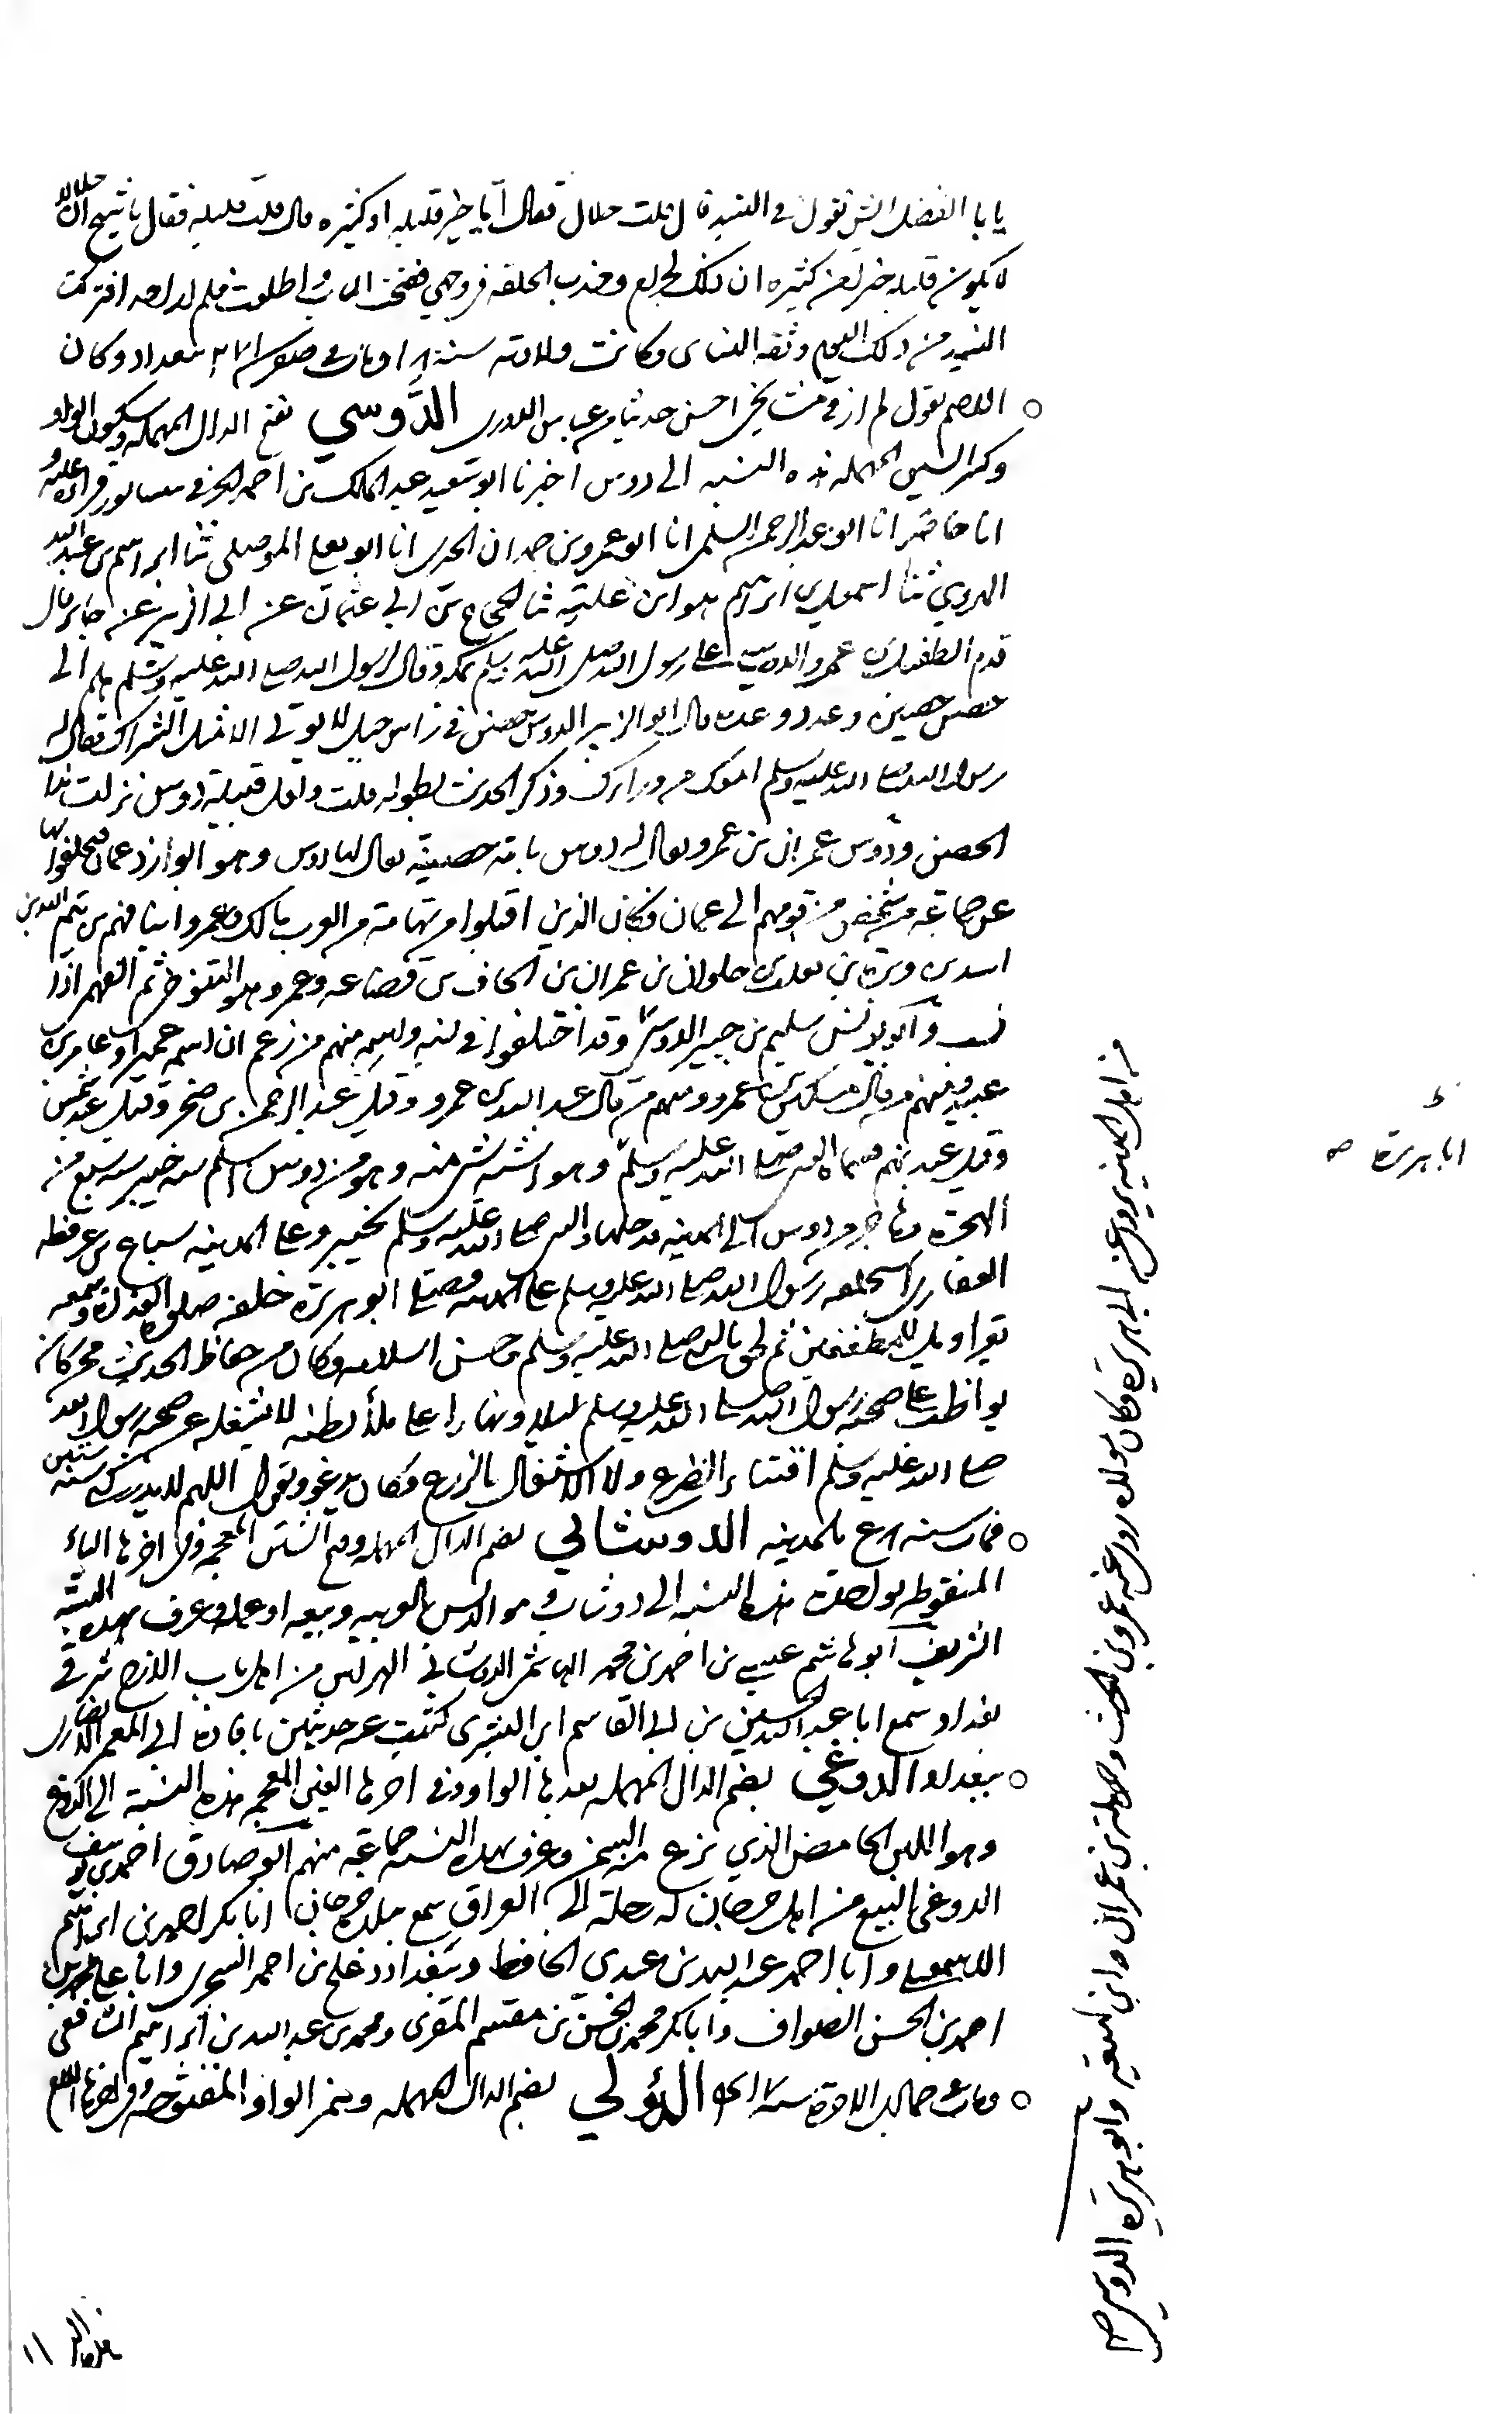 يا با الفضل ايش تقول في النبيذ قال قلت حلال فقال ايما خير قليله او كثيره قال قلت قليله فقال يا شيخ ان حلالا
لا يكون قليله خير من كثيره ان ذلك وجذب الحلقه في وجهي ففتحت الباب اطلعت فلم ار احدا فتركت
النبيذ من ذلك اليوم وثقه النساى وكانت ولادته سنة ومات في صفر سنة ٢٧١ ببغداد وكان
الاصم يقول لم ار في مشايخي احسن حديثا من عباس الدورى الدَّوسي بفتح الدال المهمله وسكون الواو
وكسر السين المهمله هذه النسبه الى دوس اخبرنا ابو سعيد عبد الملك بن احمد بنيسابور قراءة عليه و
انا حاضر انا ابو عبد الرحمن السلمى انا ابو عمرو بن حمدان الحيرى انا ابو يعلى الموصلى ثنا ابراهيم بن عبد الله
الهروي ثنا اسمعيل بن ابراهيم هو ابن علية ثنا الحجاج بن ابي عثمان عن ابي الزبير عن جابر قال
قدم الطفيل بن عمرو الدوسي على رسول الله صلى الله عليه وسلم بمكة وقال لرسول الله صلى الله عليه وسلم هلم الى
حصن حصين وعدد وعدة قال ابو الزبير الدوس حصن في راس جبل لا يوتى الا في مثل الشراك فقال له
رسول الله صلى الله عليه وسلم امعك من وراءك وذكر الحديث بطوله قلت ولعل قبيلة دوس نزلت هذا
الحصن ودوس عمران بن عمرو يقال له دوس باسم حصينة يقال لها دوس وهو ابو ازد عمان تحلفوا بها
عن جماعة من شخص من قومهم الى عمان فكان الذين اقبلوا من تهامة من العرب مالك وعمرو ابنا فهم بن تيم الله بن
اسد بن وبرة بن تغلب بن حلوان بن عمران بن الحاف بن قضاعه وعمرو هو التنوخ ثم العهم ازد
وابو يونس سليم بن جبير الدوسى وقد اختلفوا في كنيه واسمه منهم من زعم ان اسمه عمير بن عامر بن
عبد ومنهم من قال سكين بن عمرو ومنهم من قال عبد الله بن عمرو وقيل عبد الرحمن بن صخر وقيل عبد شمس
وقيل عبد نهم فسماه النبي صلى الله عليه وسلم وهو اشبه شى منه وهو من دوس اسلم سنه خيبر سنه سبع من
الهجرة وهاجر من دوس الى المدينه فدخلها والنبي صلى الله عليه وسلم بخيبر وعلى المدينه سباع بن عرفطه
الغفارى استخلفه رسول الله صلى الله عليه وسلم على المدينه فصلى ابو هريرة خلفه صلوة الغداة وسمعه
يقرا ويل للمطففين ثم لحق بالنبي صلى الله عليه وسلم وحسن اسلامه وكان من حفاظ الحديث ممن كان
يواظب على صحبة رسول الله صلى الله عليه وسلم ليلا ونهارا على ملأ بطنه لا يشغله عن صحبة رسول الله
صلى الله عليه وسلم اقتناء الضرع ولا الاشتغال بالزرع وكان يدعو ويقول اللهم لا يدركني سنه ستين
فمات سنه بالمدينه الدوشابي بضم الدال المهمله وفتح الشين المعجمه وفي اخرها الباء
المنقوطه بواحدة هذه النسبه الى دوشاب وهو الدبس بالعربيه وبيعه او عمله وعرف بهذه النسبه
الشريف ابو هاشم عيسى بن احمد بن محمد الهاشمى الدوشابي الهراس من اهل باب الازج شرقي
بغداد سمع ابا عبد الله الحسين بن ابي القاسم ابن البسرى كتبت عنه حديثين بافادة ابي المعمر الانصارى
ببغداد الدوغي بضم الدال المهمله بعدها الواو وفي اخرها الغين المعجمه هذه النسبة الى الدوغ
وهو اللبن الحامض الذي نزع منه السمن وعرف بهذه النسبه جماعة منهم ابو صادق احمد بن يوسف
الدوغى البيع من اهل جرجان له رحلة الى العراق سمع ببلده جرجان ابا بكر احمد بن ابراهيم
الاسمعيلى وابا احمد عبد الله بن عدي الحافظ وببغداد دعلج بن احمد السجزى وابا على محمد بن
احمد بن الحسن الصواف وابا بكر محمد بن الحسن بن مقسم المقرى ومحمد بن عبد الله بن ابراهيم الشافعى
ومات في جمادى الاخرة سنة الدؤلي بضم الدال المهمله وهمز الواو المفتوحه وفي اخرها اللام
من اهل المدينه يروى عن ابي هريرة وكان مولاه روى عنه عمرو بن الحرث وحرملة بن عمران وابن لهيعة وابو هريرة الدوسى صح
ابا هريرة